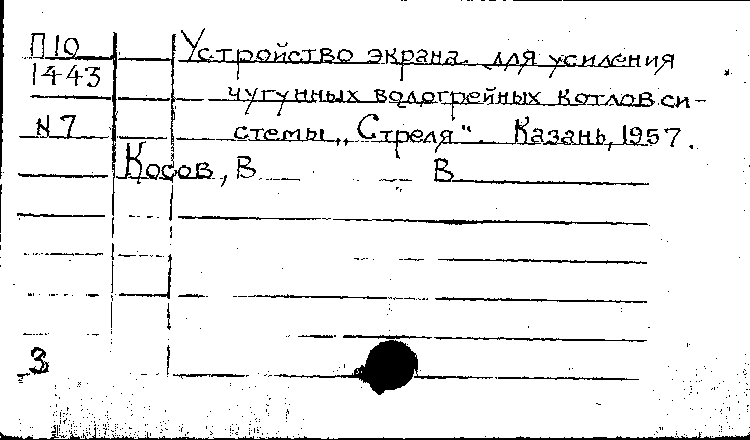 П10 Устройство экрана для усиления
1443 чугунных водогрейных котлов си-
N7 стемы „Стреля". Казань, 1957.
Косов, В В
3